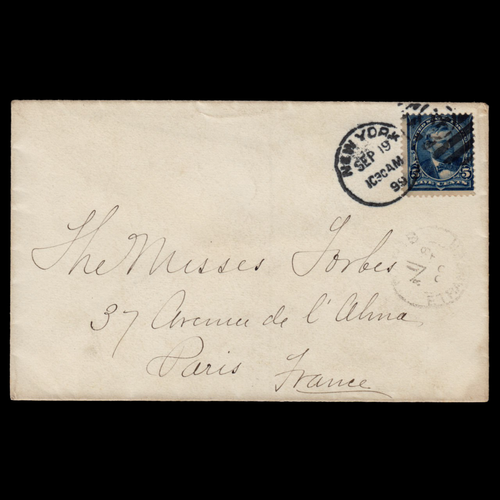 NEW YORK
SEP 19
10 30 AM
99
5
The Misses Forbes
37 Avenue de l'Alma
Paris France